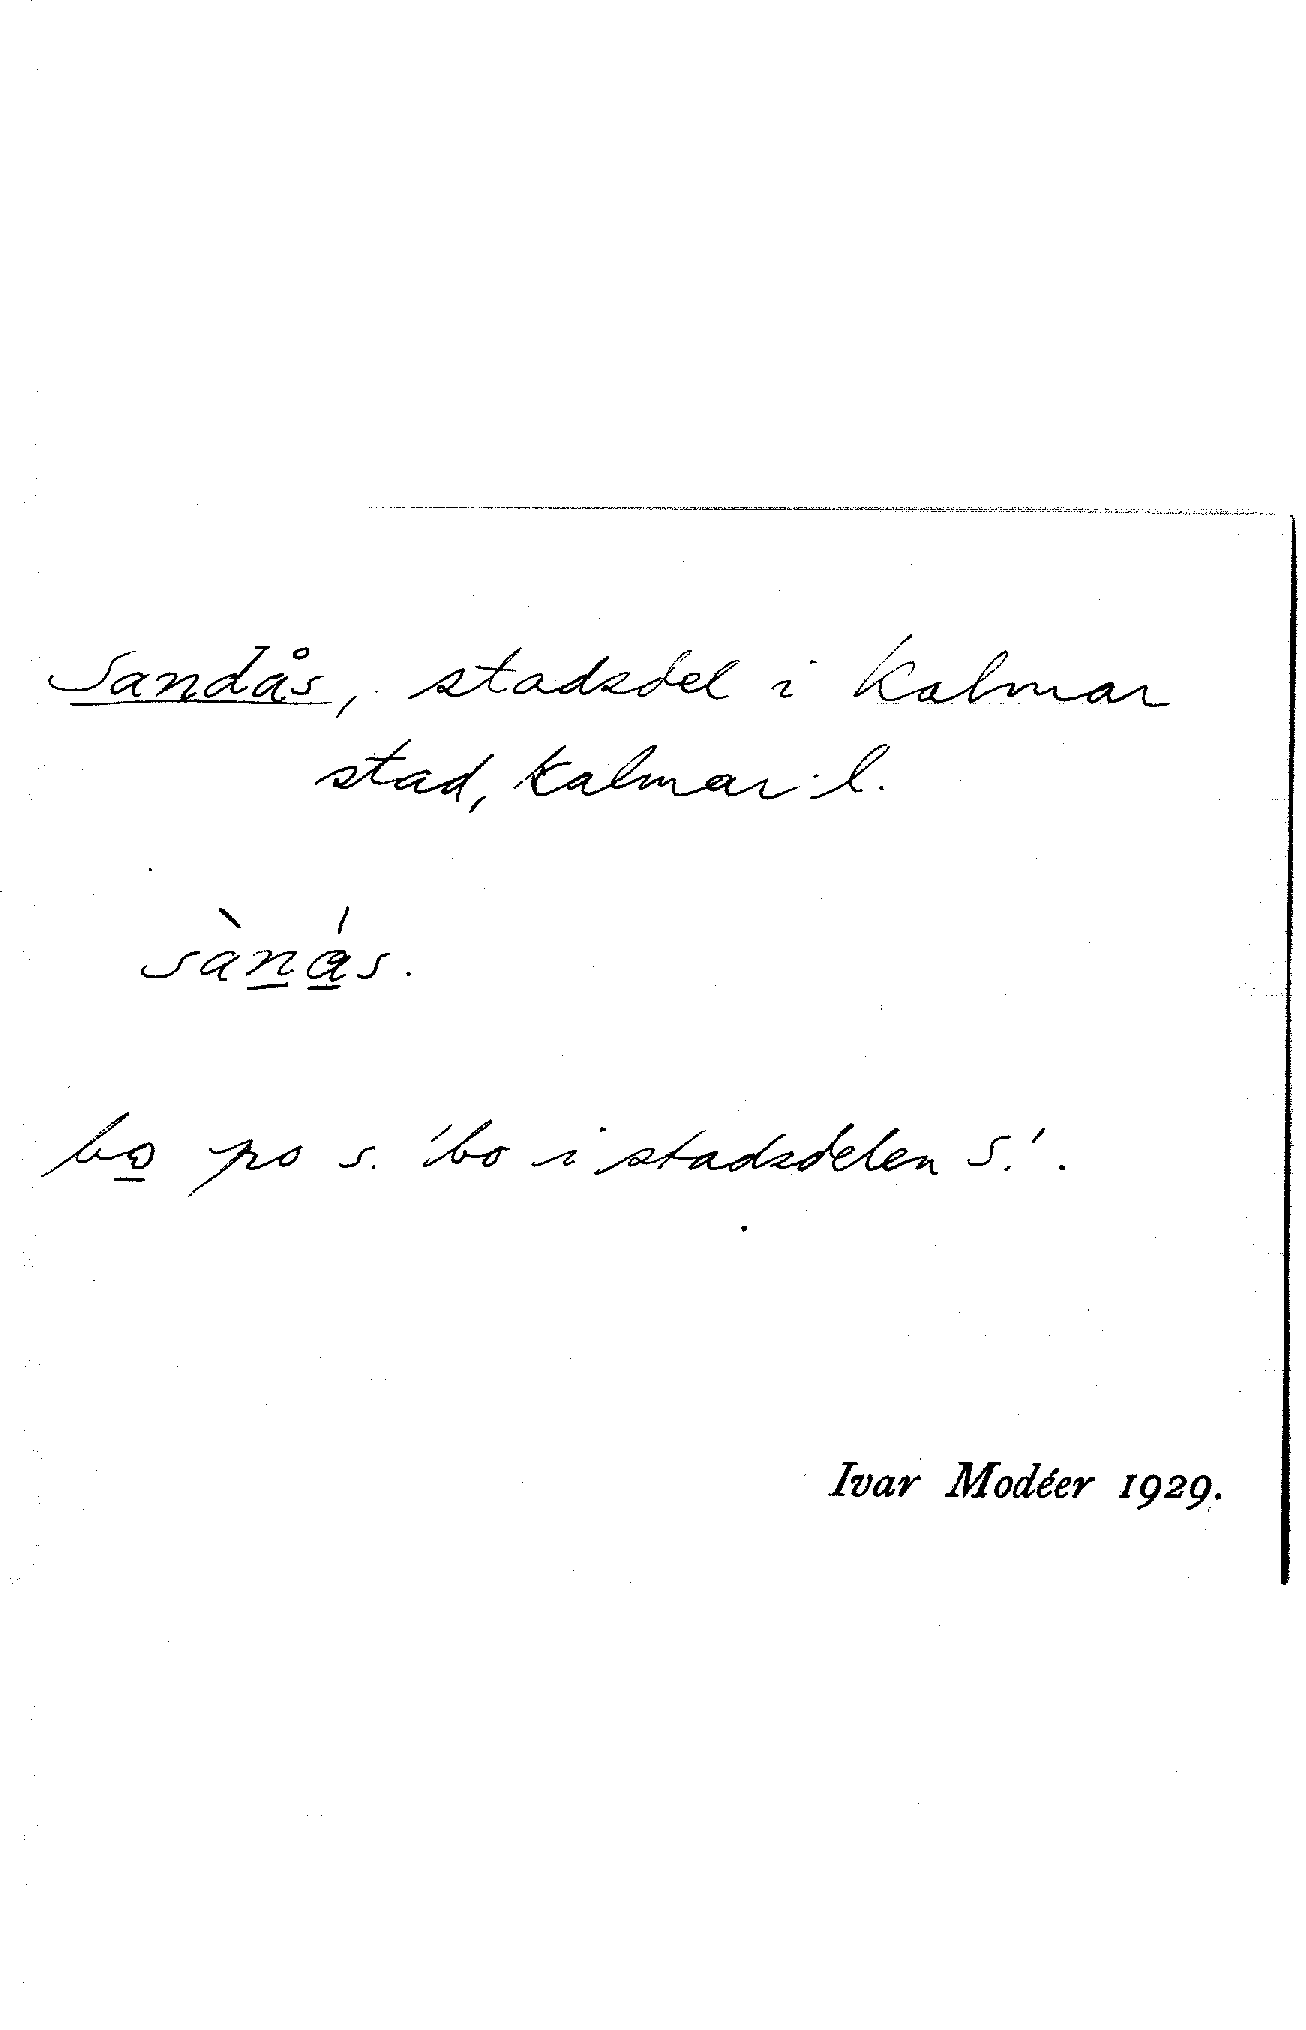 Sandås, stadsdel i Kalmar
stad, Kalmar l.
sànás.
bo po s. 'bo i stadsdelen S.'.
Ivar Modéer 1929.